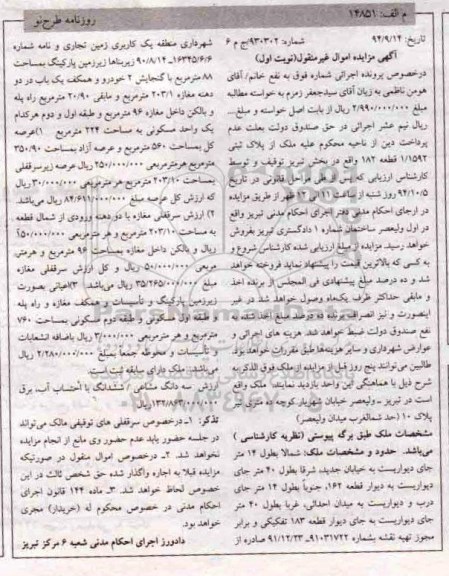 م الف: ۱۴۸۵۱
روزنامه طرح‌نو
تاریخ: ۹۴/۹/۱۴ شماره: ۹۳۰۳۰۲/ج م ۶
آگهی مزایده اموال غیرمنقول(نوبت اول)
درخصوص پرونده اجرائی شماره فوق به نفع خانم/ آقای
هومن ناظمی به زیان آقای سیدجعفر زمرم به خواسته مطالبه
مبلغ ۲/۹۹۰/۰۰۰/۰۰۰ ریال از بابت اصل خواسته و مبلغ...
ریال نیم عشر اجرائی در حق صندوق دولت بعلت عدم
پرداخت دین از ناحیه محکوم علیه ملک از پلاک ثبتی
۱/۱۵۹۲ قطعه ۱۸۲ واقع در بخش تبریز توقیف و توسط
کارشناس ارزیابی که پس از طی مراحل قانونی در تاریخ
۹۴/۱۰/۵ روز شنبه از ساعت ۱۱ الی ۱۲ ظهر از طریق مزایده
در اجرای احکام مدنی دفتر اجرای احکام مدنی تبریز واقع
در اول ولیعصر ساختمان شماره ۱ دادگستری تبریز بفروش
خواهد رسید. مزایده از مبلغ ارزیابی شده کارشناس شروع و
به کسی که بالاترین قیمت را پیشنهاد نماید فروخته خواهد
شد و ده درصد مبلغ پیشنهادی فی المجلس از برنده اخذ
و مابقی حداکثر ظرف یک‌ماه وصول خواهد شد در غیر
اینصورت و نیز انصراف برنده ده درصد مبلغ اخذ شده به
نفع صندوق دولت ضبط خواهد شد. هزینه های اجرائی و
عوارض شهرداری و سایر هزینه‌ها طبق مقررات خواهد بود.
طالبین می‌توانند پنج روز قبل از مزایده از ملک فوق الذکر به
شرح ذیل با هماهنگی این واحد بازدید نمایند: ملک واقع
است در تبریز ـ ولیعصر خیابان شهریار کوچه ده متری
پلاک ۱۰ (حد شمالغرب میدان ولیعصر)
مشخصات ملک طبق برگه پیوستی (نظریه کارشناسی )
می‌باشد. حدود و مشخصات ملک: شمالا بطول ۱۴ متر
جای دیواریست به خیابان جدید، شرقا بطول ۴۰ متر جای
دیواریست به دیوار قطعه ۱۶۲، جنوبا بطول ۱۴ متر جای
درب و دیواریست به میدان احداثی، غربا بطول ۴۰ متر
جای دیواریست به جای دیوار قطعه ۱۸۳ تفکیکی و برابر
مجوز تهیه نقشه بشماره ۹۱۰۳۱۷۲۲ـ ۹۱/۱۲/۲۳ صادره از
شهرداری منطقه یک کاربری زمین تجاری و نامه شماره
۱۶۳۴۵/۶/۶ـ ۹۰/۸/۱۴ زیربناها زیرزمین پارکینگ بمساحت
۸۸ مترمربع با گنجایش ۲ خودرو و همکف یک باب در دو
دهنه مغازه ۲۰۳/۱ مترمربع و مابقی ۲۰/۹۰ مترمربع راه پله
و بالکن داخل مغازه ۹۶ مترمربع و طبقه اول و دوم هرکدام
یک واحد مسکونی به مساحت ۲۲۴ مترمربع ۱)عرصه
کل بمساحت ۵۶۰ مترمربع و عرصه آزاد بمساحت ۳۵۰/۹۰
مترمربع هرمترمربعی ۲۵۰/۰۰۰/۰۰۰ ریال عرصه زیرسرقفلی
بمساحت ۲۰۳/۱۰ مترمربع هر مترمربعی ۳۰/۰۰۰/۰۰۰ ریال
که ارزش کل عرصه مبلغ ۸۴/۶۱۱/۰۰۰/۰۰۰ ریال می‌باشد.
۲) ارزش سرقفلی مغازه با دو دهنه ورودی از شمال قطعه
به مساحت ۲۰۳/۱۰ مترمربع و هر مترمربعی ۵۰/۰۰۰/۰۰۰؟
ریال و بالکن داخل مغازه بمساحت ۹۶ مترمربع و هرمتر
مربعی ۵۰/۰۰۰/۰۰۰ ریال و کل ارزش سرقفلی مغازه
مبلغ ۳۵/۲۶۵/۰۰۰/۰۰۰ ریال می‌باشد. ۳)اعیانی بصورت
زیرزمین پارکینگ و تأسیسات و همکف مغازه و راه پله
و طبقه اول مسکونی و طبقه دوم مسکونی بمساحت ۷۶۰
مترمربع و هر مترمربعی ۳/۰۰۰/۰۰۰ ریال باضافه انشعابات
و تأسیسات و محوطه جمعاً بمبلغ ۲/۲۸۰/۰۰۰/۰۰۰ ریال
می‌باشد: ملک دارای سابقه ثبت است.
ارزش سه دانگ مشاعی / ششدانگ با احتساب آب، برق
۱۳۲/۸۶۳/۰۰۰/۰۰۰ریال
تذکر: ۱ـ درخصوص سرقفلی های توقیفی مالک می‌تواند
در جلسه حضور یابد عدم حضور وی مانع از انجام مزایده
نخواهد شد. ۲ـ درخصوص اموال منقول در صورتیکه
مزایده قبلا به اجاره واگذار شده حق شخص ثالث در این
خصوص لحاظ خواهد شد. ۳ـ ماده ۱۲۴ قانون اجرای
احکام مدنی در خصوص محکوم له (خریدار) مجری
خواهد بود.
دادورز اجرای احکام مدنی شعبه ۶ مرکز تبریز